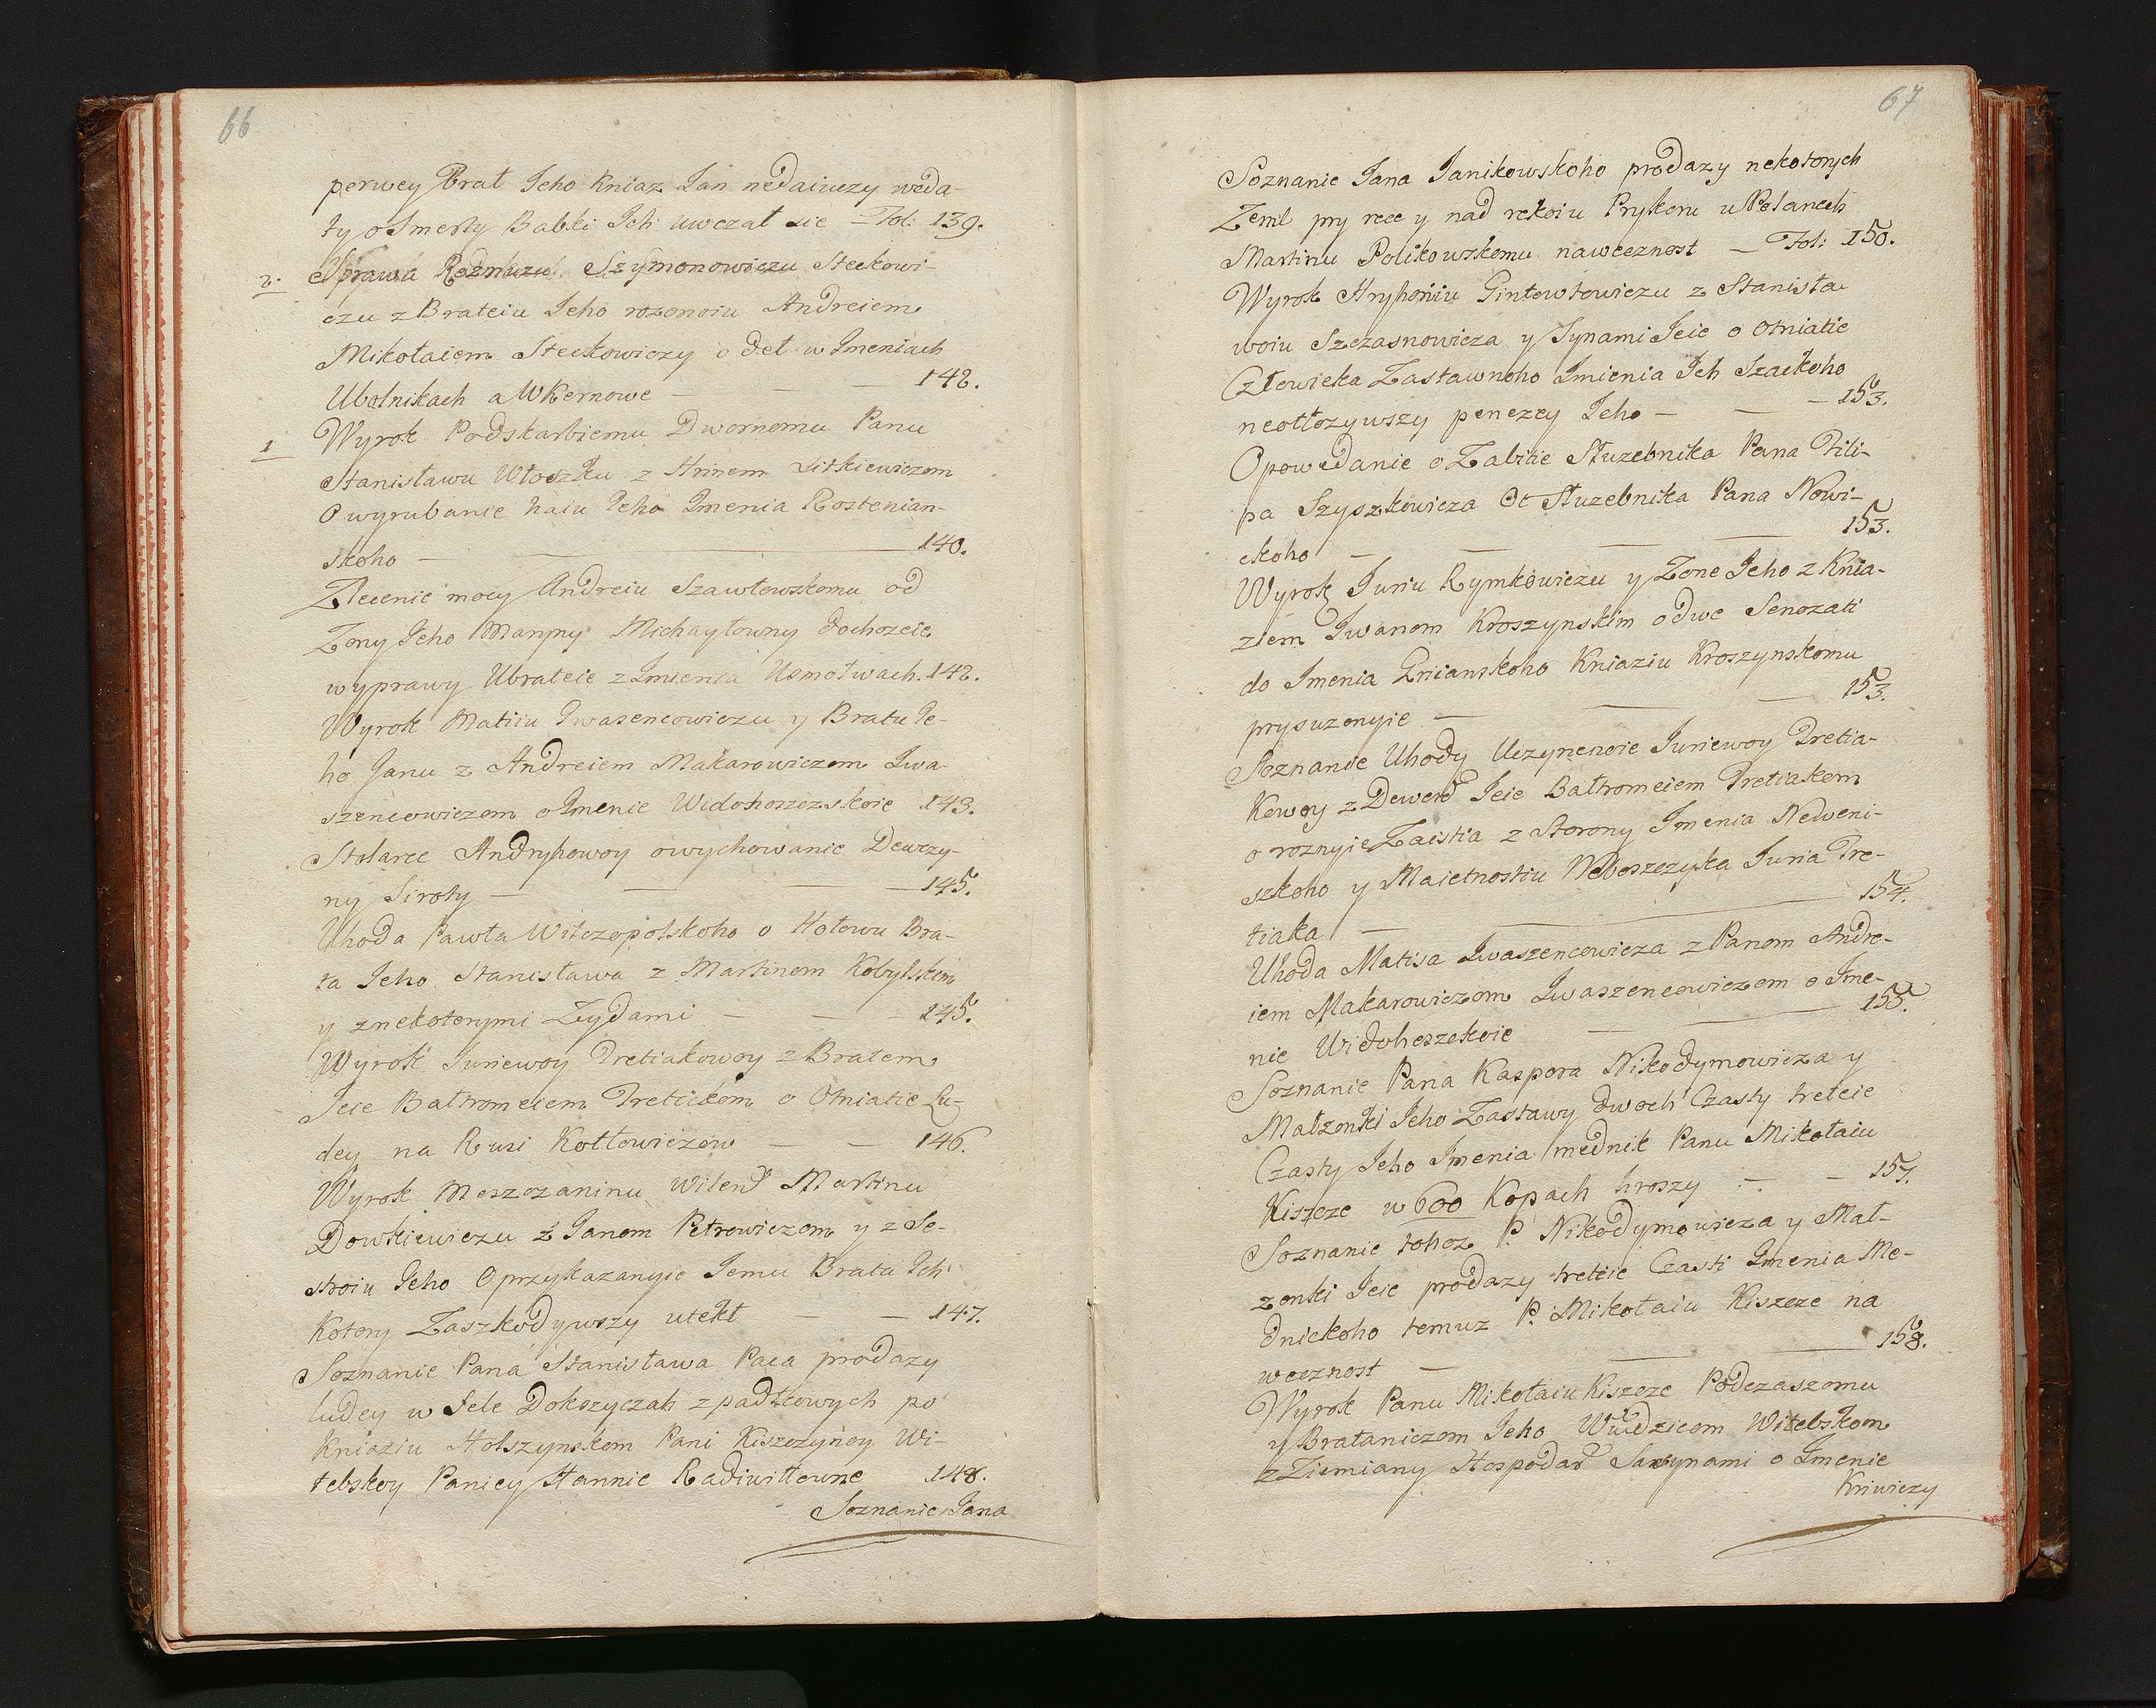 66
perwey Brat Jeho Kniaz Jan nedaiuczy weda-
ty o Smerty Babki Jch uwczal sie – Fol: 139.
2. Sprawa Szymonowiczu Steckowi-
czu z Brateiu Jeho rozonoiu Andreiem
Mikołaiem Steckowiczy o del w Jmeniach
Ubolnikach a W Kernowe – – – 142.
1 Wyrok Podskarbiemu Dwornomu Panu
Stanisławu Włoszku z Hrinem Litkiewiczom
O wyrubanie haiu Jeho Jmenia Rostenian-
skoho – – – 140.
Zlecenie mocy Andreiu Szawłowskomu od
Zony Jeho Maryny Michayłowny dochozeie
wyprawy Ubrateie z Jmienia Usmołwach. 142.
Wyrok Matiiu Jwasencowiczu y Bratu Je-
ho Janu z Andreiem Makarowiczom Jwa-
szencowiczom o Jmenie Widohoszczskoie 143.
Stolarce Andryhowoy owychowanie Dewczy-
ny Siroty – – – – 145.
Uhoda Pawła Wilczopolskoho o Hołowu Bra-
ta Jeho Stanisława z Martinom Kobylskim
y znekotorymi Zydami – – – 145.
Wyrok Juriewoy Tretiakowoy z Bratem
Jeie Bałtromeiem Tretiakom o Otniatie Lu-
dey na Rusi Kotłowiczow – – 146.
Wyrok Meszczaninu Wilens Martinu
Dowkiewiczu z Janom Petrowiczom y z Se-
stroiu Jeho O przykazanyie Jemu Brata Jch
Kotory Zaszkodywszy utekł – – 147.
Soznanie Pana Stanisława Paca prodazy
ludey w Sele Dokszyczah z padłowych po
Kniaziu Holszynskom Pani Kiszczyney Wi-
tebskoy Paniey Hannie Radiwiłowne 148.
Soznanie Jana
67
Soznanie Jana Janikowskoho prodazy nekotorych
Zeml pry rece y nad rekoiu Prykoru u Polanech
Martinu Polikowskomu naweeznost – Fol: 150.
Wyrok Hryhoriu Gintowtowiczu z Stanisła-
woiu Szczasnowicza y Synami Jeie o otniatie
Człowieka Zastawnoho Jmienia Jch Szackoho
neotłozywszy penezey Jeho – – – 153.
Opowedanie o Zabitie Służebnika Pana Fili-
pa Szyszkowicza Ot Służebnika Pana Nowi-
ckoho – – – – 153.
Wyrok Juriu Rymkowiczu y Zone Jeho z Knia-
ziem Jwanom Kroszynskim o dwe Senozati
do Jmenia Gnianskoho Kniaziu Kroszynskomu
prysuzenyie – – – 153.
Soznanie Uhody Uczynenoie Juriewoy Tretia-
kowoy z Dewerd Jeie Bałtromeiem Tretiakom
o roznyie Zaistia z Storony Jmenia Nedweni-
szkoho y Maietnostiu Neboszczyka Juria Tre-
tiaka – – 154.
Uhoda Matisa Jwaszencowicza z Panom Andre-
iem Makarowiczom Jwaszencowiczom o Jme-
nie Widoheszskoie – – 155.
Soznanie Pana Kaspora Nikodymowicza y
Małzonki Jeho Zastawy dwoch Czasty treteie
Czasty Jeho Jmenia mednik Panu Mikołaiu
Kiszcze w 600 Kopach hroszy – – 157.
Soznanie tohoz P. Nikodymowicza y Mał-
zonki Jeie prodazy treteie Czasti Jmenia Me-
dnickoho temuz P. Mikołaiu Kiszcze na
weeznost – – – 158.
Wyrok Panu Mikołaiu Kiszcze Podczaszomu
y Brataniczom Jeho Witebskom
z Ziemiany Hospodar Sawynami o Jmenie
Kriwiczy